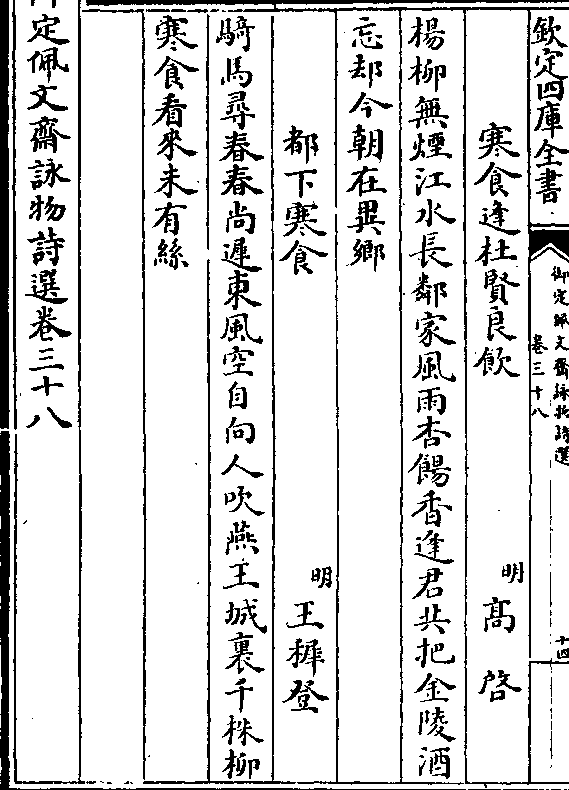 欽定四庫全書
御定佩文齋詠物詩選
卷三十八
十四
寒食逢杜賢良飲
明
髙啓
楊柳無煙江水長鄰家風雨杏餳香逢君共把金陵酒
忘却今朝在異鄉
都下寒食
明
王穉登
騎馬尋春春尚遲東風空自向人吹燕王城裏千株柳
寒食看來未有絲
定佩文齋詠物詩選卷三十八